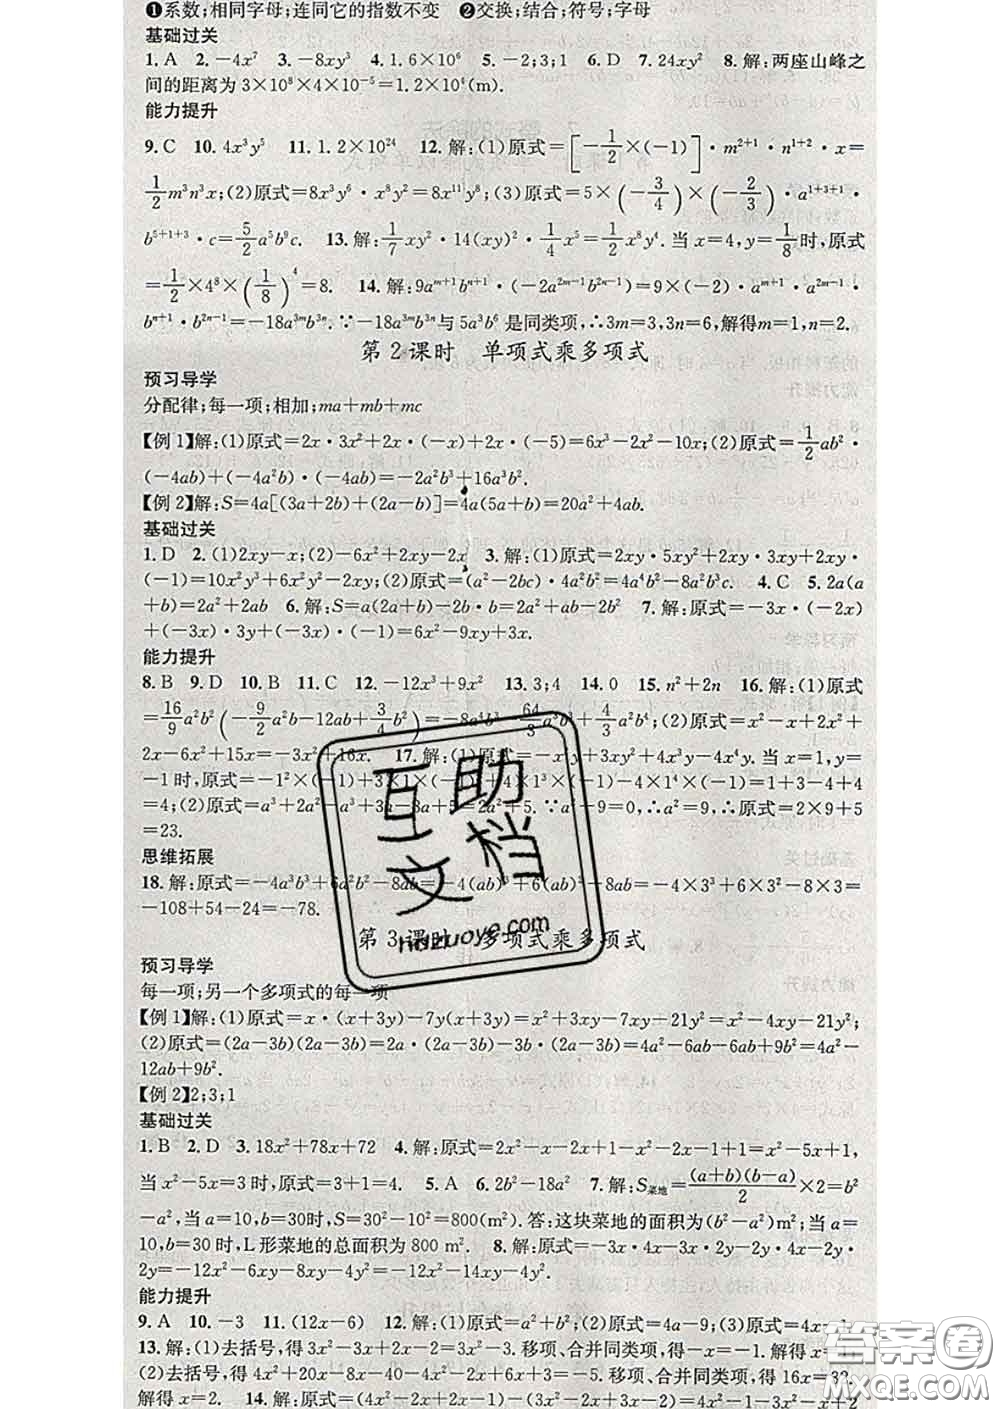 ❶系数;相同字母;连同它的指数不变 ❷交换;结合;符号;字母
基础过关
1. A 2. －4x⁷ 3. －8xy³ 4. 1.6×10⁶ 5. －2;3;1 6. D 7. 24xy² 8. 解:两座山峰之
间的距离为 3×10⁸×4×10⁻⁵＝1.2×10⁴(m).
能力提升
9. C 10. 4x³y⁵ 11. 1.2×10²⁴ 12. 解:(1)原式＝[－1/2×(－1)]·m²⁺¹·n¹⁺²·x＝
1/2m³n³x;(2)原式＝8x³y⁶·x⁸y²＝8x¹¹y⁸;(3)原式＝5×(－3/4)×(－2/3)·a¹⁺³⁺¹·
b⁵⁺¹⁺³·c＝5/2a⁵b⁹c. 13. 解:1/7xy²·14(xy)²·1/4x⁵＝1/2x⁸y⁴. 当 x＝4,y＝1/8时,原式
＝1/2×4⁸×(1/8)⁴＝8. 14. 解:9aᵐ⁺¹bⁿ⁺¹·(－2a²ᵐ⁻¹b²ⁿ⁻¹)＝9×(－2)·aᵐ⁺¹·a²ᵐ⁻¹·
bⁿ⁺¹·b²ⁿ⁻¹＝－18a³ᵐb³ⁿ. ∵－18a³ᵐb³ⁿ与 5a³b⁶ 是同类项,∴3m＝3,3n＝6,解得m＝1,n＝2.
第 2 课时 单项式乘多项式
预习导学
分配律;每一项;相加;ma＋mb＋mc
【例 1】解:(1)原式＝2x·3x²＋2x·(－x)＋2x·(－5)＝6x³－2x²－10x;(2)原式＝1/2ab²·
(－4ab)＋(－4a²b)·(－4ab)＝－2a²b³＋16a³b².
【例 2】解:S＝4a[(3a＋2b)＋(2a－b)]＝4a(5a＋b)＝20a²＋4ab.
基础过关
1. D 2. (1)2xy－x;(2)－6x²＋2xy－2x 3. 解:(1)原式＝2xy·5xy²＋2xy·3xy＋2xy·
(－1)＝10x²y³＋6x²y²－2xy;(2)原式＝(a²－2bc)·4a²b²＝4a⁴b²－8a²b³c. 4. C 5. 2a(a
＋b)＝2a²＋2ab 6. 解:S＝a(2a－b)－2b·b＝2a²－ab－2b² 7. 解:原式＝－3x·(－2x)
＋(－3x)·3y＋(－3x)·(－1)＝6x²－9xy＋3x.
能力提升
8. B 9. D 10. B 11. C 12. －12x³＋9x² 13. 3;4 14. 0 15. n²＋2n 16. 解:(1)原式
＝16/9a²b²(－9/2a²b－12ab＋3/4b²)＝－8a⁴b³－64/3a³b³＋4/3a²b⁴;(2)原式＝x²－x＋2x²＋
2x－6x²＋15x＝－3x²＋16x. 17. 解:(1)原式＝－xy＋3xy²＋4x³y－4x⁴y. 当 x＝1,y＝
－1时,原式＝－1×(－1)＋3×1×(－1)²＋4×1³×(－1)－4×1⁴×(－1)＝1＋3－4＋4
＝4;(2)原式＝a³＋2a²－2a－a³＋3a－a＋5＝2a²＋5. ∵a²－9＝0,∴a²＝9;∴原式＝2×9＋5
＝23.
思维拓展
18. 解:原式＝－4a³b³＋6a²b²－8ab＝－4(ab)³＋6(ab)²－8ab＝－4×3³＋6×3²－8×3＝
－108＋54－24＝－78.
第 3 课时 多项式乘多项式
预习导学
每一项;另一个多项式的每一项
【例 1】解:(1)原式＝x·(x＋3y)－7y(x＋3y)＝x²＋3xy－7xy－21y²＝x²－4xy－21y²;
(2)原式＝(2a－3b)(2a－3b)＝2a·(2a－3b)－3b·(2a－3b)＝4a²－6ab－6ab＋9b²＝4a²－
12ab＋9b².
【例 2】2;3;1
基础过关
1. B 2. D 3. 18x²＋78x＋72 4. 解:原式＝2x²－x－2x＋1－x²－2x－1＋1＝x²－5x＋1,
当 x²－5x＝3 时,原式＝3＋1＝4. 5. A 6. 2b²－18a² 7. 解:S菜地＝(a＋b)(b－a)/2×2＝b²
－a²,当 a＝10,b＝30时,S＝30²－10²＝800(m²). 答:这块菜地的面积为(b²－a²)m²;当 a＝
10,b＝30 时,L 形菜地的总面积为 800 m². 8. 解:原式＝－3x·4x－3x·2y－2y·4x－2y·
2y＝－12x²－6xy－8xy－4y²＝－12x²－14xy－4y².
能力提升
9. A 10. －3 11. (12x－6) 12. 解:(1)原式＝a²＋b²;(2)原式＝4a－9;(3)原式＝4x－
13. 解:(1)去括号,得 3x²－3x－2x²－4x＋2x＝x²－6x. 移项、合并同类项,得－x＝－1. 解得 x＝1.
(2)去括号,得 4x²＋20x－8x－40－4x²＋4x＝－5x. 移项、合并同类项,得 16x＝32.
解得 x＝2. 14. 解:原式＝(4x²－2x＋2x－1)－(3x²－2x＋3x－2)＝4x²－1－3x²－x＋2
互助
文档
hdzuoye.com
答案圈
MXQE.COM